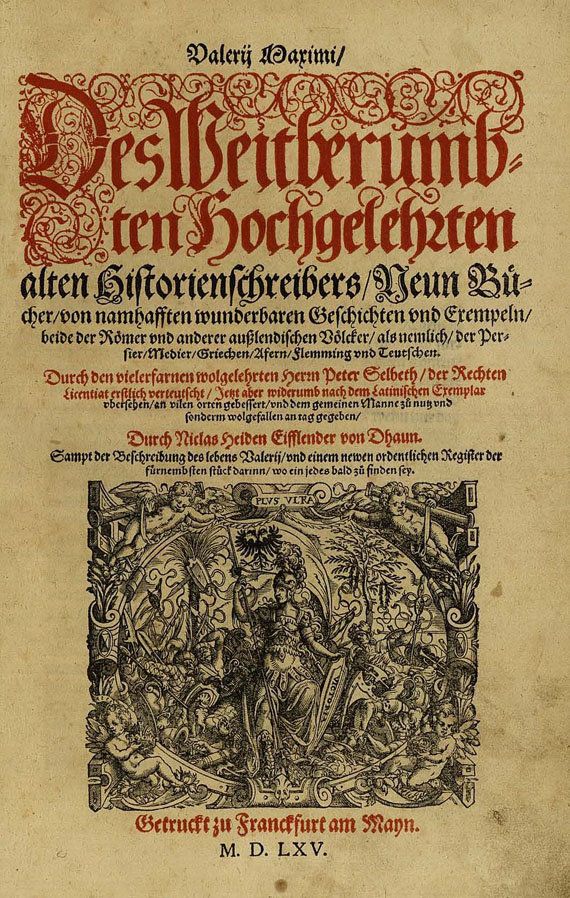 Valerij Maximi/
Des Weitberumb-
ten Hochgelehrten
alten Historienschreibers/Neun Bü-
cher/von namhafften wunderbaren Geschichten vnd Exempeln/
beide der Römer vnd anderer außlendischen Völcker/als nemlich/der Per-
sier/Medier/Griechen/Afern/Flemming vnd Teutschen.
Durch den vielerfarnen wolgelehrten Herrn Peter Selbeth/der Rechten
Licentiat erstlich verteutscht/Jetzt aber widerumb nach dem Latinischen Exemplar
vbersehen/an vilen orten gebessert/vnd dem gemeinen Manne zů nutz vnd
sonderm wolgefallen an tag gegeben/
Durch Niclas Heiden Eifflender von Dhaun.
Sampt der Beschreibung des lebens Valerij/vnd einem newen ordentlichen Register der
fürnembsten stück darinn/wo ein jedes bald zů finden sey.
PLVS VLTRA
Getruckt zu Franckfurt am Mayn.
M. D. LXV.